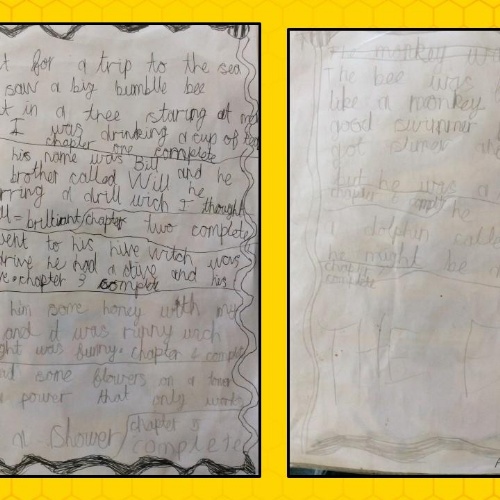 t for a trip to the sea
saw a big bumble bee
t in a tree staring at
I was drinking a cup of tea
chapter one complete
his name was Bill
brother called Will and he
rring a drill wich I thought
ll = brilliant/chapter two complete
went to his hive witch was
drive he had a dive and his
ve. chapter 3 complete
him some honey with my
and it was runny wich
ght was funny. chapter 4 complete
ad some flowers on a tower
a power that only works
a shower/chapter 5
complete
the monkey
The bee was
like a monkey
good swimmer
got
but he was a
he
a dolphin call
he might be
chapter
complete